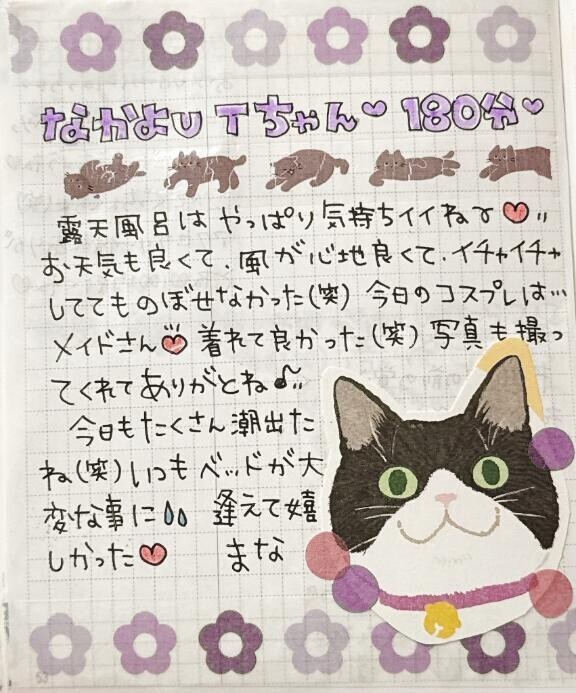 なかよしTちゃん♥ 180分♥
露天風呂は やっぱり 気持ちイイねσ♥
お天気も良くて、風が心地良くて、イチャイチャ
しててものぼせなかった(笑) 今日のコスプレは…
メイドさん♥ 着れて良かった(笑) 写真も撮っ
てくれてありがとね♪
今日もたくさん潮出た
ね(笑) いつもベッドが大
変な事に 逢えて嬉
しかった♥ まな